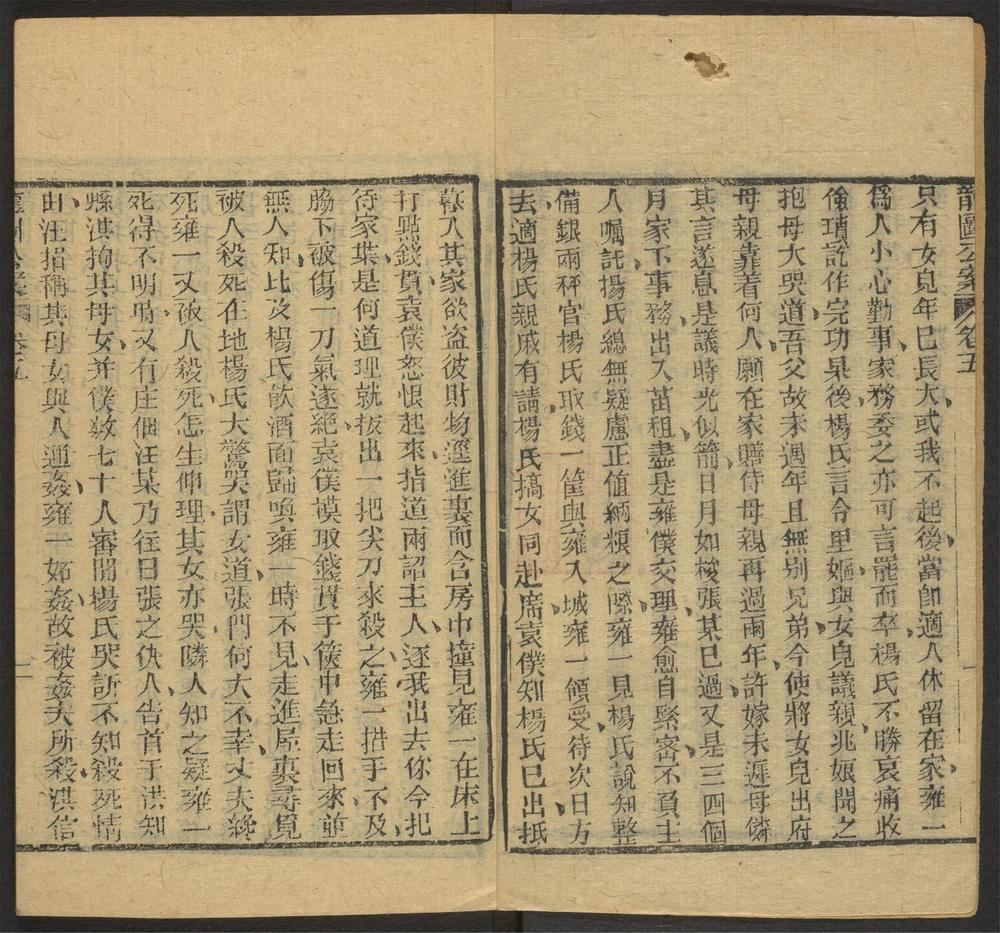 龍圖公案 卷五
只有女兒年已長大或我不起後當卽適人休留在家雍一
爲人小心勤事家務委之亦可言罷而卒楊氏不勝哀痛收
殮殯訖作完功果後楊氏言令里嫗與女兒議親兆娘聞之
抱母大哭道吾父故未週年且無别兄弟今使將女兒出府
母親靠着何人願在家膳侍母親再過兩年許嫁未遲母憐
其言遂息是議時光似箭日月如梭張某已過又是三四個
月家下事務出入苗租盡是雍僕交理雍愈自緊密不負主
人囑託楊氏總無疑慮正值納糧之際雍一見楊氏說知整
備銀兩秤官楊氏取錢一筐與雍入城雍一領受待次日方
去適楊氏親戚有請楊氏搞女同赴席袁僕知楊氏已出抵
歡入其家欲盗彼財物逕進裏面舍房中撞見雍一在床上
打點錢貫袁僕怒恨起來指道兩詔主人逐我出去你今把
待家業是何道理就抜出一把尖刀來殺之雍一措手不及
脇下破傷一刀氣遂絶袁僕摸取錢貫于篋中急走回來並
無人知比及楊氏飲酒面歸喚雍一時不見走進屋裏尋覓
被人殺死在地楊氏大驚哭謂女道張門何大不幸丈夫纔
死雍一又被人殺死怎生伸理其女亦哭隣人知之疑雍一
死得不明曷又有庄佃汪某乃往日張之仇人告首于洪知
縣淇拘其母女并僕數七十人審問楊氏哭訴不知殺死情
由汪招稱其母女與人通姦雍一妬姦故被姦夫所殺淇信
卷五
一